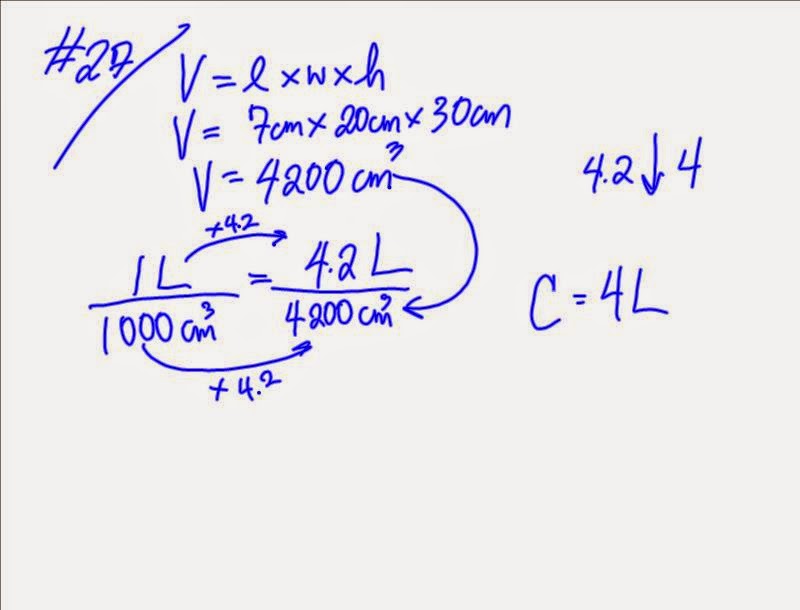 #27
V = l × w × h
V = 7cm × 20cm × 30cm
V = 4200 cm³
4.2 ↓ 4
×4.2
1 L = 4.2 L
1000 cm³ 4200 cm³
×4.2
C = 4L